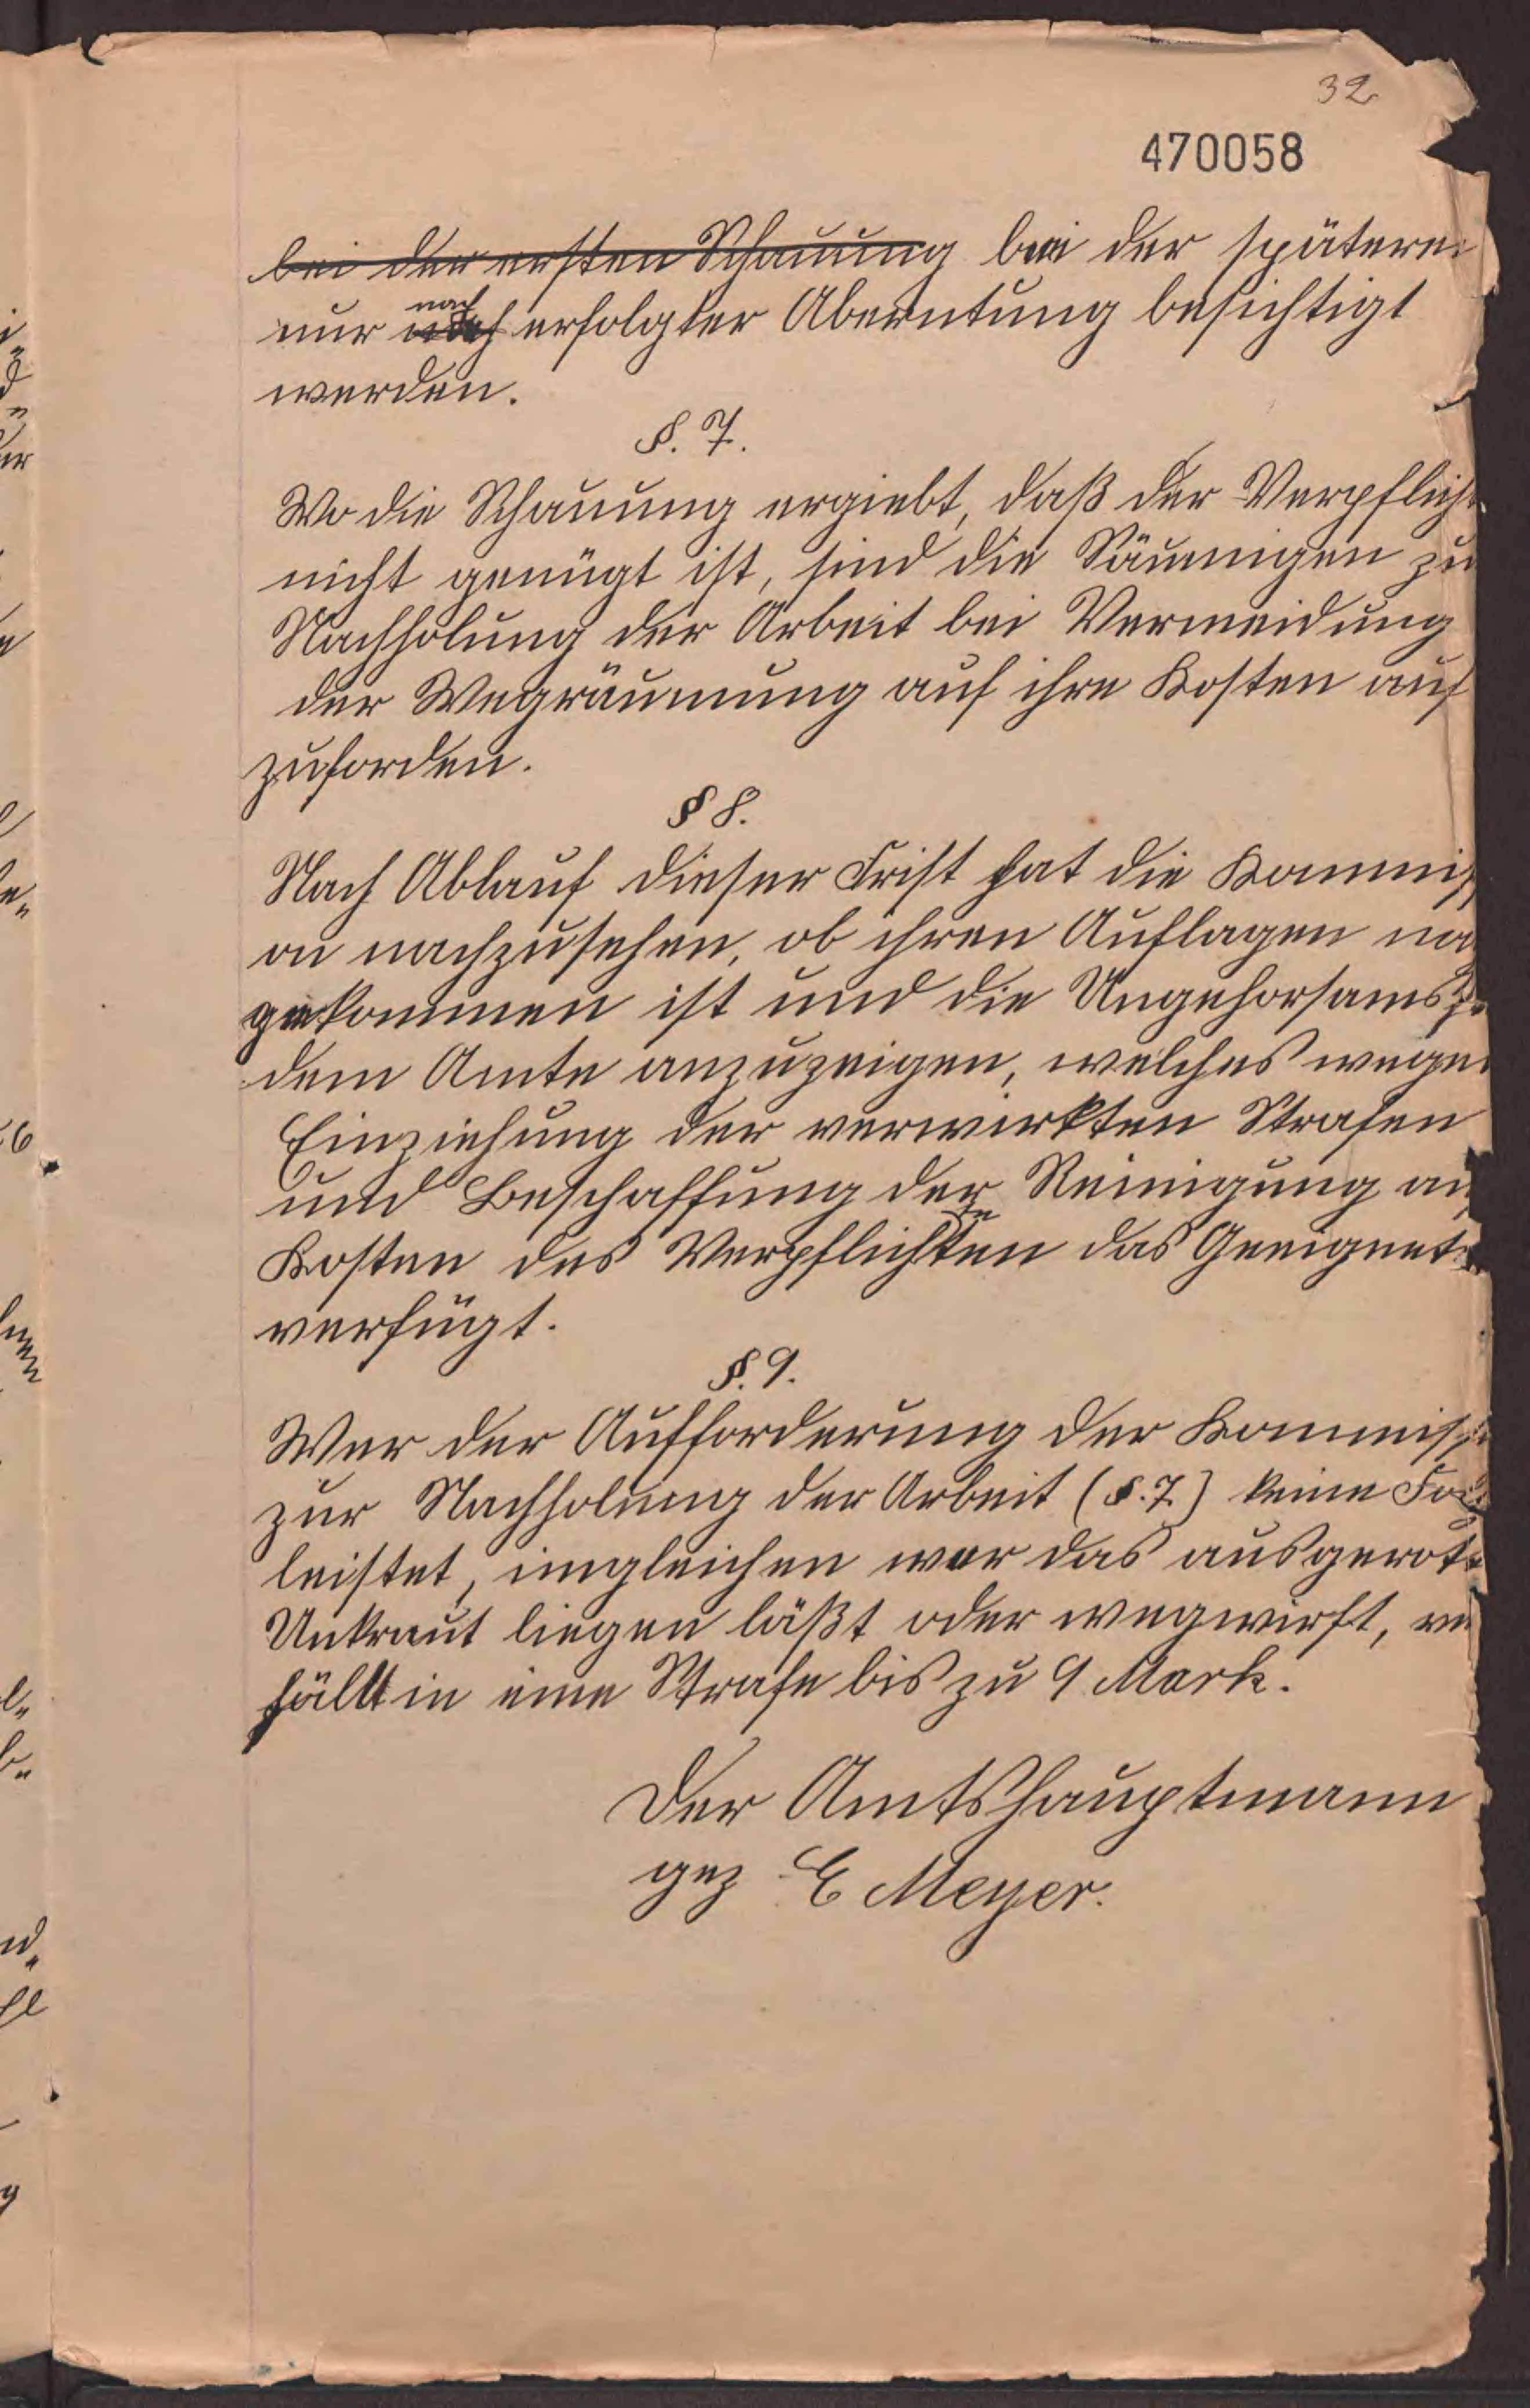 32
470058
bei der ersten Schauung bei der späteren
nur nach erfolgter Aberntung besichtigt
werden.
§. 7.
Wo die Schauung ergiebt, daß der Verpflich-
nicht genügt ist, sind die Säumigen zu
Nachholung der Arbeit bei Vermeidung
der Wegräumung auf ihre Kosten auf
zuforden.
§ 8.
Nach Ablauf dieser Frist hat die Kommis
on nachzusehen, ob ihren Auflagen na
gekommen ist und die Ungehorsams
dem Amte anzuzeigen, welches wegen
Einziehung der verwirkten Strafen
und Beschaffung der Reinigung au
Kosten des Verpflichteten das Geeignete
verfügt.
§. 9.
Wer der Aufforderung der Kommiss
zur Nachholung der Arbeit (§. 7.) keine Fol
leistet, imgleichen wer das ausgerott
Unkraut liegen läßt oder wegwirft, ver
fällt in eine Strafe bis zu 9 Mark.
Der Amtshauptmann
gez E Meyer.